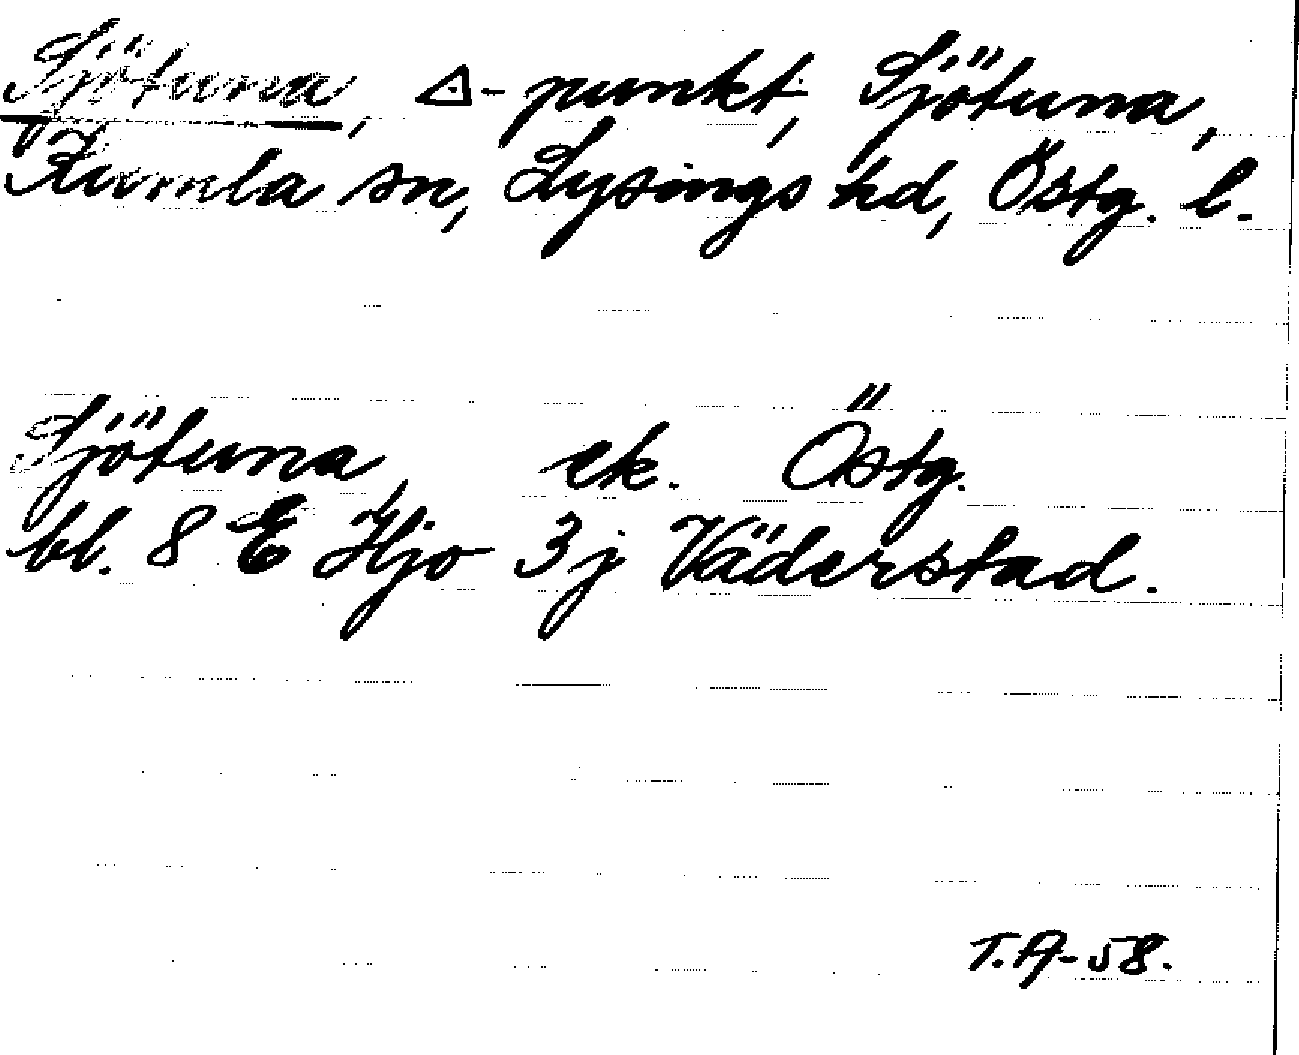 Sjötuna, △-punkt, Sjötuna,
Kumla sn, Lysings hd, Östg. l.
Sjötuna, ek. Östg.
bl. 8 E Hjo 3j Väderstad.
T.A-58.